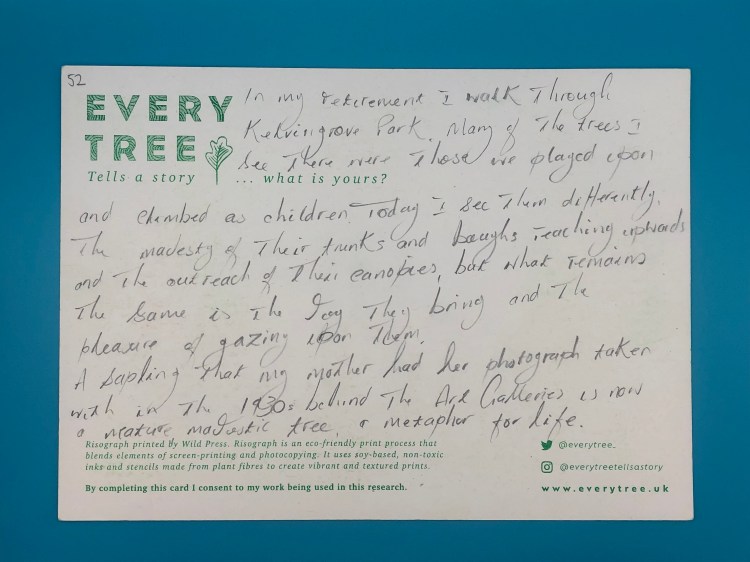 52
EVERY
TREE
Tells a story ... what is yours?
In my retirement I walk through
Kelvingrove Park. Many of the trees I
see there were those we played upon
and climbed as children. Today I see them differently.
The madesty of their trunks and boughs reaching upwards
and the outreach of their canopies, but what remains
the same is the joy they bring and the
pleasure of gazing upon them.
A sapling that my mother had her photograph taken
with in the 1930s behind the Art Galleries is now
a mature madestic tree, a metaphor for life.
Risograph printed by Wild Press. Risograph is an eco-friendly print process that
blends elements of screen-printing and photocopying. It uses soy-based, non-toxic
inks and stencils made from plant fibres to create vibrant and textured prints.
By completing this card I consent to my work being used in this research.
@everytree_
@everytreetellsastory
www.everytree.uk